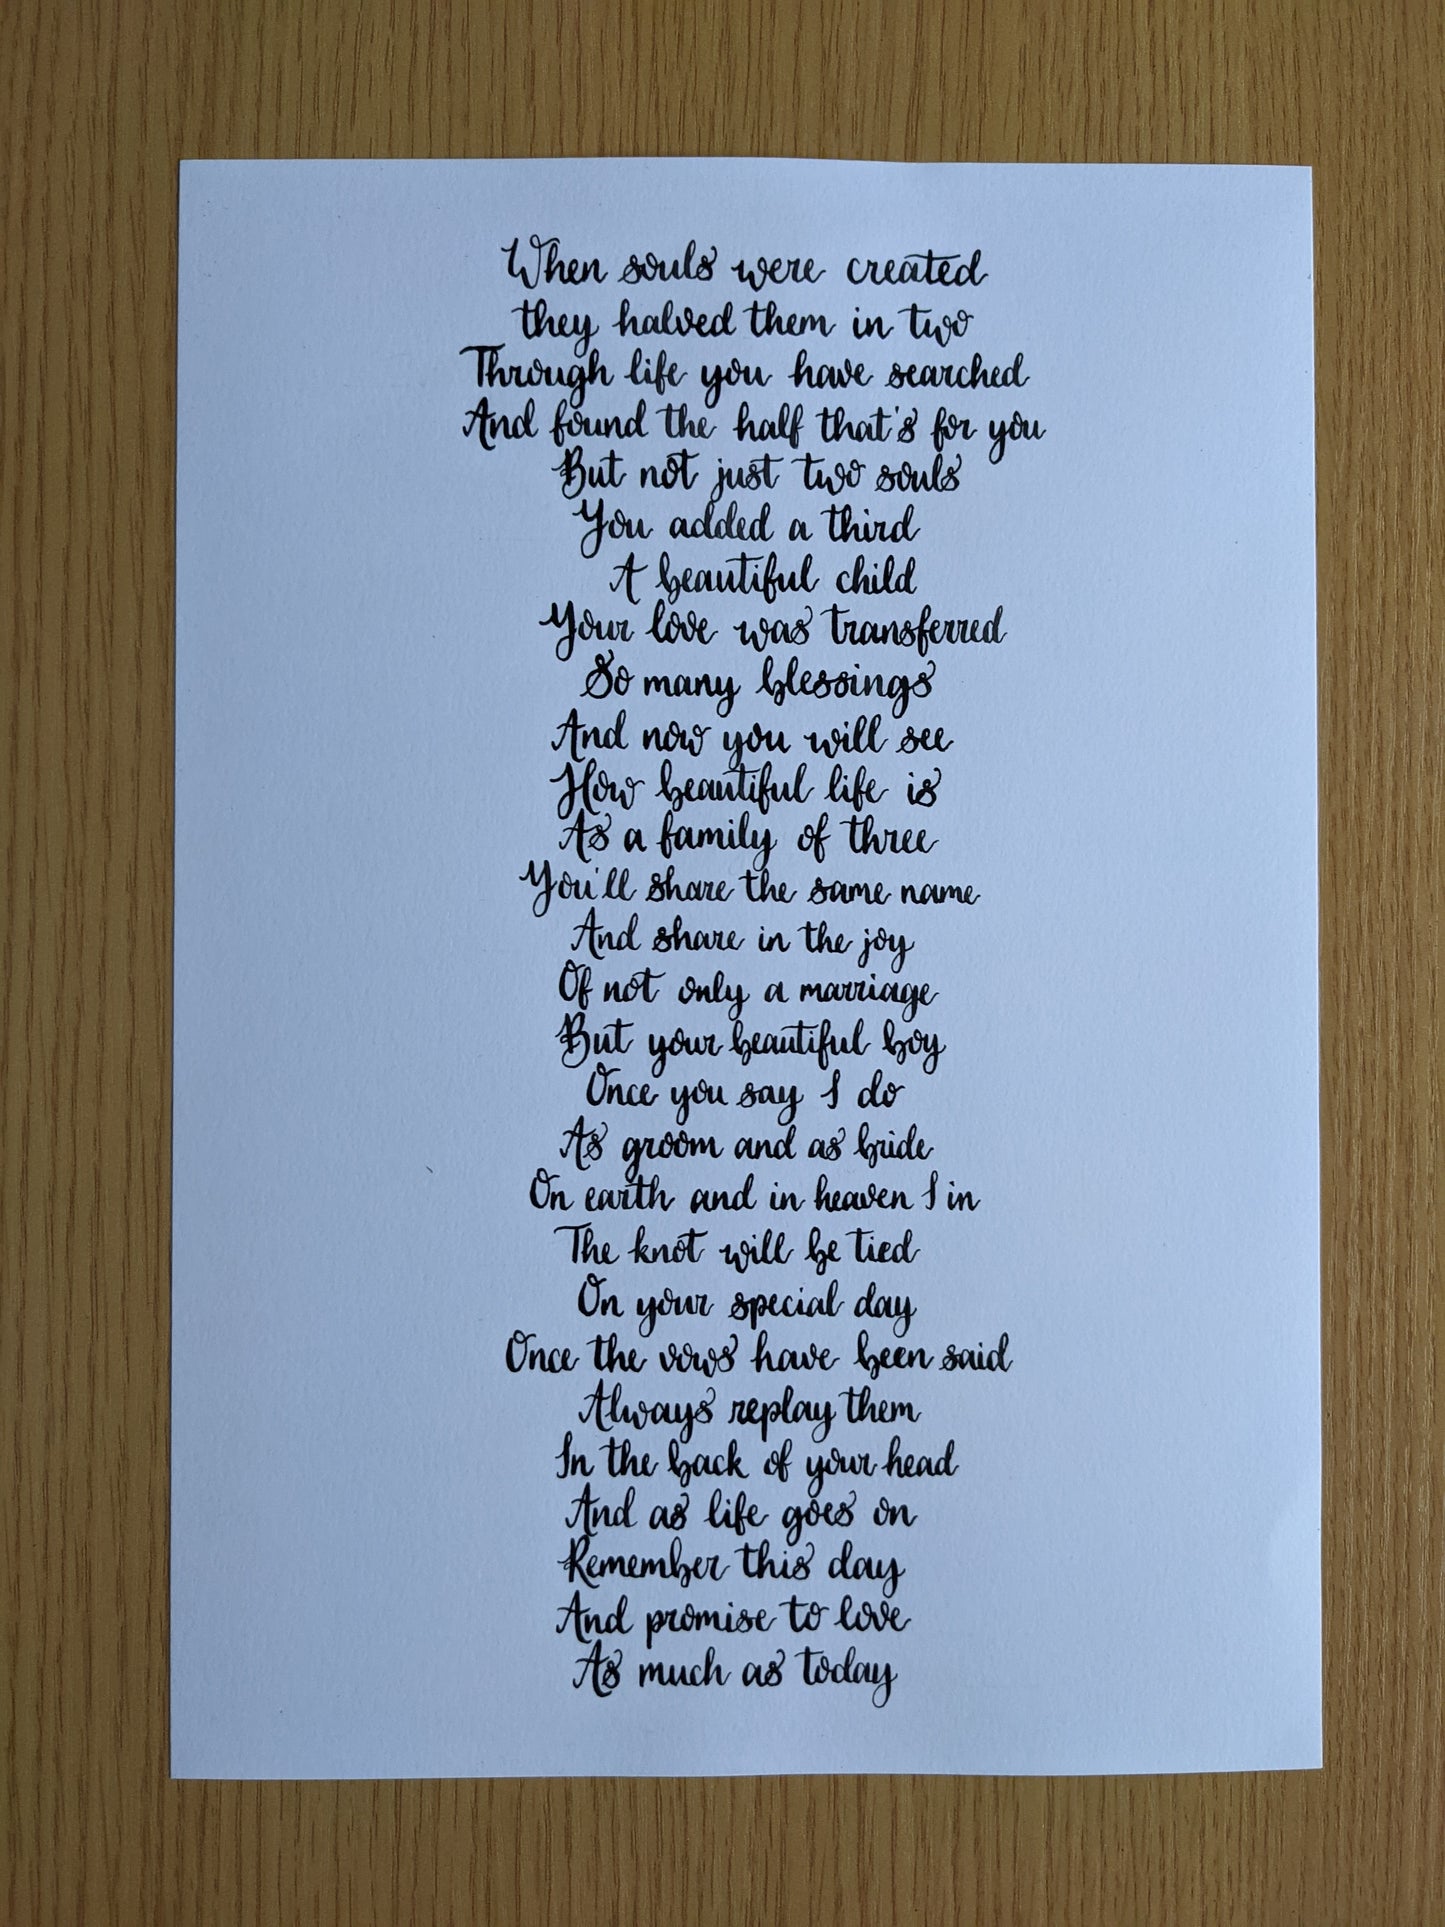 When souls were created
they halved them in two
Through life you have searched
And found the half that's for you
But not just two souls
You added a third
A beautiful child
Your love was transferred
So many blessings
And now you will see
How beautiful life is
As a family of three
You'll share the same name
And share in the joy
Of not only a marriage
But your beautiful boy
Once you say I do
As groom and as bride
On earth and in heaven I in
The knot will be tied
On your special day
Once the vows have been said
Always replay them
In the back of your head
And as life goes on
Remember this day
And promise to love
As much as today